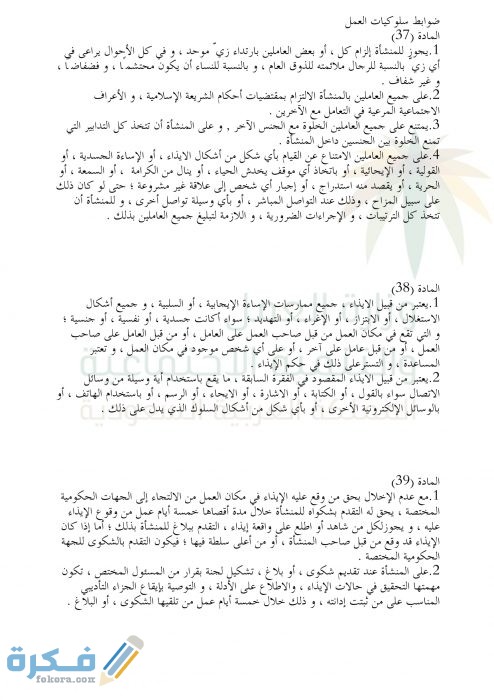 ضوابط سلوكيات العمل
المادة (37)
1.يجوز للمنشأة إلزام كل ، أو بعض العاملين بارتداء زيّ موحد ، و في كل الأحوال يراعى في
أي زيّ بالنسبة للرجال ملائمته للذوق العام ، و بالنسبة للنساء أن يكون محتشمًا ، و فضفاضًا ،
و غير شفاف .
2.على جميع العاملين بالمنشأة الالتزام بمقتضيات أحكام الشريعة الإسلامية ، و الأعراف
الاجتماعية المرعية في التعامل مع الآخرين .
3.يمتنع على جميع العاملين الخلوة مع الجنس الآخر , و على المنشأة أن تتخذ كل التدابير التي
تمنع الخلوة بين الجنسين داخل المنشأة .
4.على جميع العاملين الامتناع عن القيام بأي شكل من أشكال الايذاء ، أو الإساءة الجسدية ، أو
القولية ، أو الإيحائية ، أو باتخاذ أي موقف يخدش الحياء ، أو ينال من الكرامة ، أو السمعة ، أو
الحرية ، أو يقصد منه استدراج ، أو إجبار أي شخص إلى علاقة غير مشروعة ؛ حتى لو كان ذلك
على سبيل المزاح ، وذلك عند التواصل المباشر ، أو بأي وسيلة تواصل أخرى ، و للمنشأة أن
تتخذ كل الترتيبات ، و الإجراءات الضرورية ، و اللازمة لتبليغ جميع العاملين بذلك .
المادة (38)
1.يعتبر من قبيل الايذاء ، جميع ممارسات الإساءة الإيجابية ، أو السلبية ، و جميع أشكال
الاستغلال ، أو الابتزاز ، أو الإغراء ، أو التهديد ؛ سواء أكانت جسدية ، أو نفسية ، أو جنسية ؛
و التي تقع في مكان العمل من قبل صاحب العمل على العامل ، أو من قبل العامل على صاحب
العمل ، أو من قبل عامل على آخر ، أو على أي شخص موجود في مكان العمل ، و تعتبر
المساعدة ، و التستر على ذلك في حكم الإيذاء .
2.يعتبر من قبيل الايذاء المقصود في الفقرة السابقة ، ما يقع باستخدام أية وسيلة من وسائل
الاتصال سواء بالقول ، أو الكتابة ، أو الاشارة ، أو الايحاء ، أو الرسم ، أو باستخدام الهاتف ، أو
بالوسائل الإلكترونية الأخرى ، أو بأي شكل من أشكال السلوك الذي يدل على ذلك .
المادة (39)
1.مع عدم الإخلال بحق من وقع عليه الإيذاء في مكان العمل من الالتجاء إلى الجهات الحكومية
المختصة ، يحق له التقدم بشكواه للمنشأة خلال مدة أقصاها خمسة أيام عمل من وقوع الإيذاء
عليه ، و يجوزلكل من شاهد أو اطلع على واقعة إيذاء ، التقدم ببلاغ للمنشأة بذلك ؛ أما إذا كان
الإيذاء قد وقع من قبل صاحب المنشأة ، أو من أعلى سلطة فيها ؛ فيكون التقدم بالشكوى للجهة
الحكومية المختصة .
2.على المنشأة عند تقديم شكوى ، أو بلاغ ، تشكيل لجنة بقرار من المسئول المختص ، تكون
مهمتها التحقيق في حالات الإيذاء ، والاطلاع على الأدلة ، و التوصية بإيقاع الجزاء التأديبي
المناسب على من ثبتت إدانته ، و ذلك خلال خمسة أيام عمل من تلقيها الشكوى ، أو البلاغ .
فكرة
fekera.com